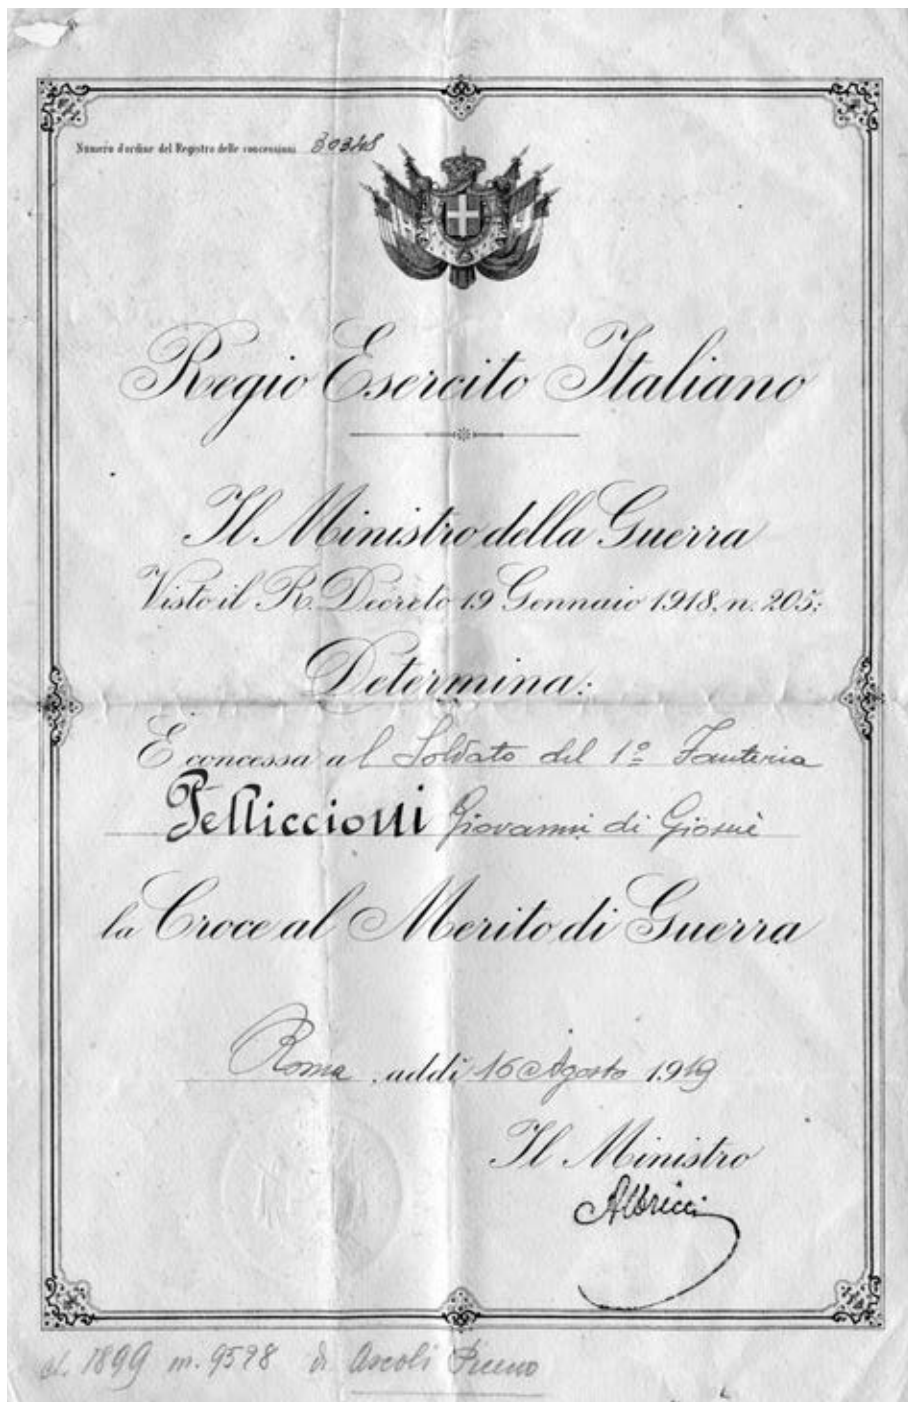 Numero d'ordine del Registro delle concessioni 30348
Regio Esercito Italiano
Il Ministro della Guerra
Visto il R. Decreto 19 Gennaio 1918. n. 205:
Determina:
È concessa al Soldato del 1º Fanteria
Pelliccioni Giovanni di Giosuè
la Croce al Merito di Guerra
Roma, addì 16 Agosto 1919
Il Ministro
Albricci
cl. 1899 m. 9598 di Ascoli Piceno